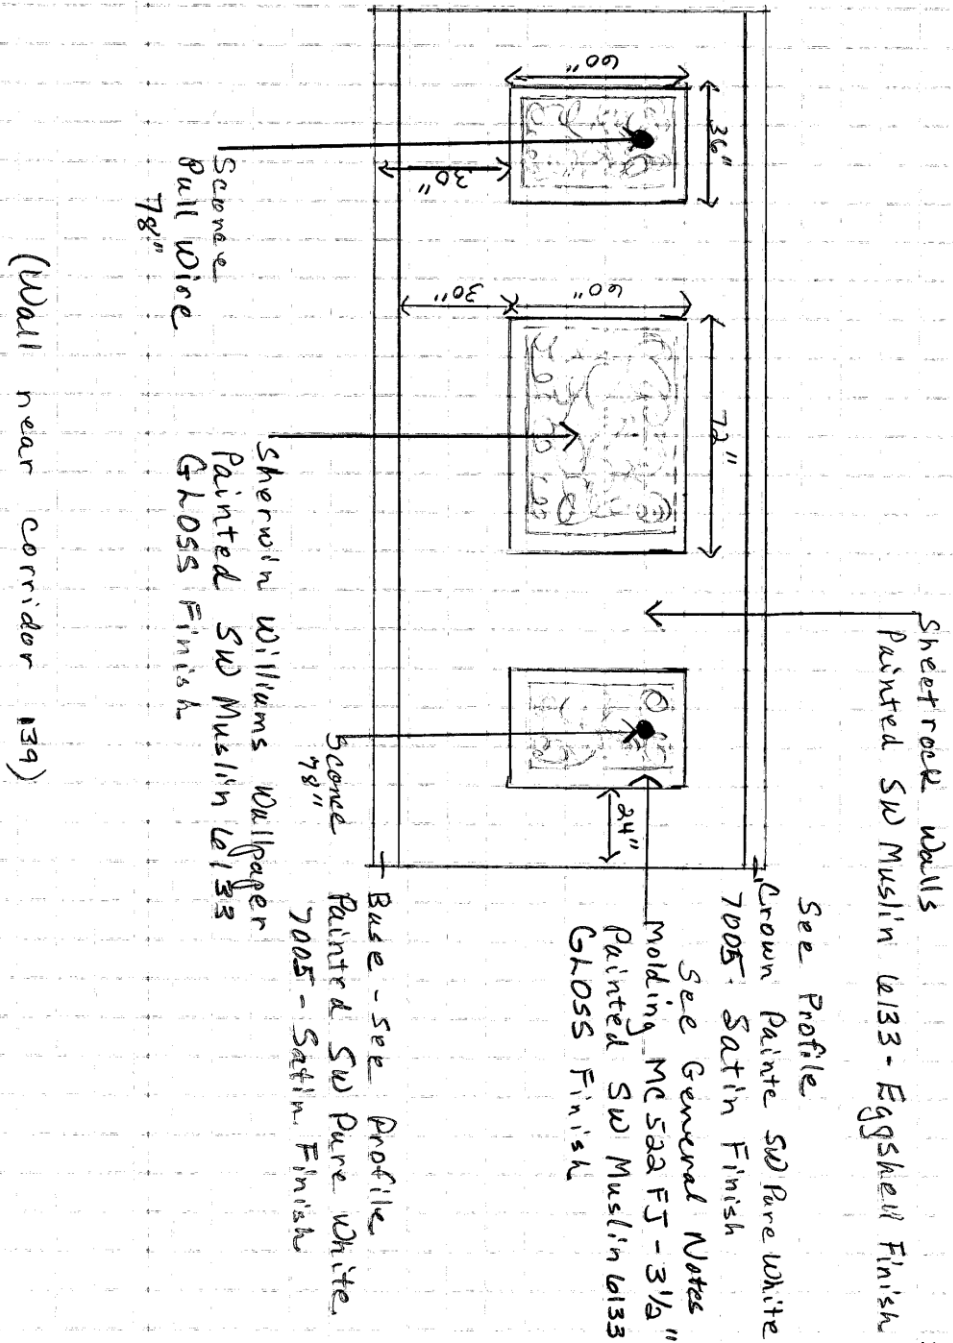 Sheetrock Walls
Painted SW Muslin 6133 - Eggshell Finish
See Profile
Crown Painte SW Pure White
7005 - Satin Finish
See General Notes
Molding MC522FJ - 3 1/2"
Painted SW Muslin 6133
GLOSS Finish
Base - See Profile
Painted SW Pure White
7005 - Satin Finish
36"
60"
30"
72"
60"
30"
24"
Sconce
Pull Wire
78"
Sherwin Williams Wallpaper
Painted SW Muslin 6133
GLOSS Finish
Sconce
78"
(Wall near corridor 139)